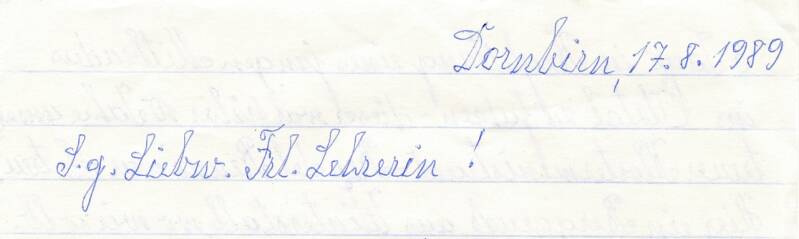 Dornbirn, 17. 8. 1989
S. g. Liebw. Frl. Lehrerin !